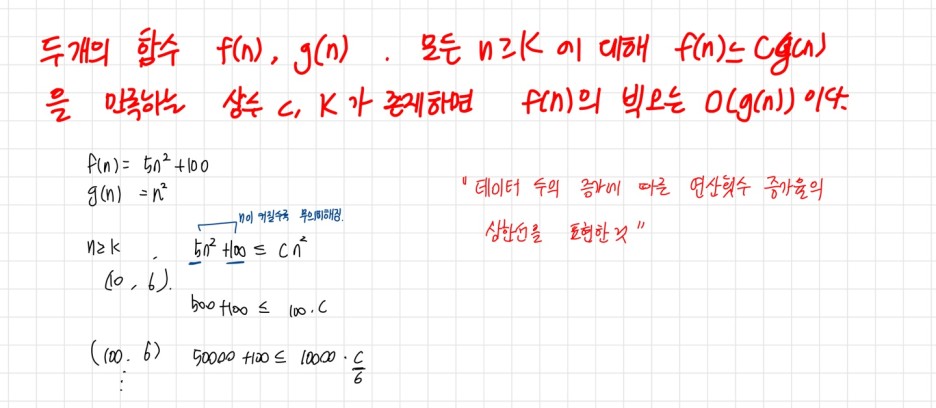 두개의 함수 f(n), g(n) . 모든 n≥K 에 대해 f(n)≤Cg(n)
을 만족하는 상수 C, K가 존재하면 f(n)의 빅오는 O(g(n))이다.
f(n)= 5n²+100
g(n) =n²
"데이터 수의 증가에 따른 연산횟수 증가율의
상한선을 표현한 것"
n이 커질수록 무의미해짐.
n≥k , 5n²+100 ≤ Cn²
(10, 6).
500+100 ≤ 100·C
(100. 6) 50000+100≤ 10000·C
6
⋮